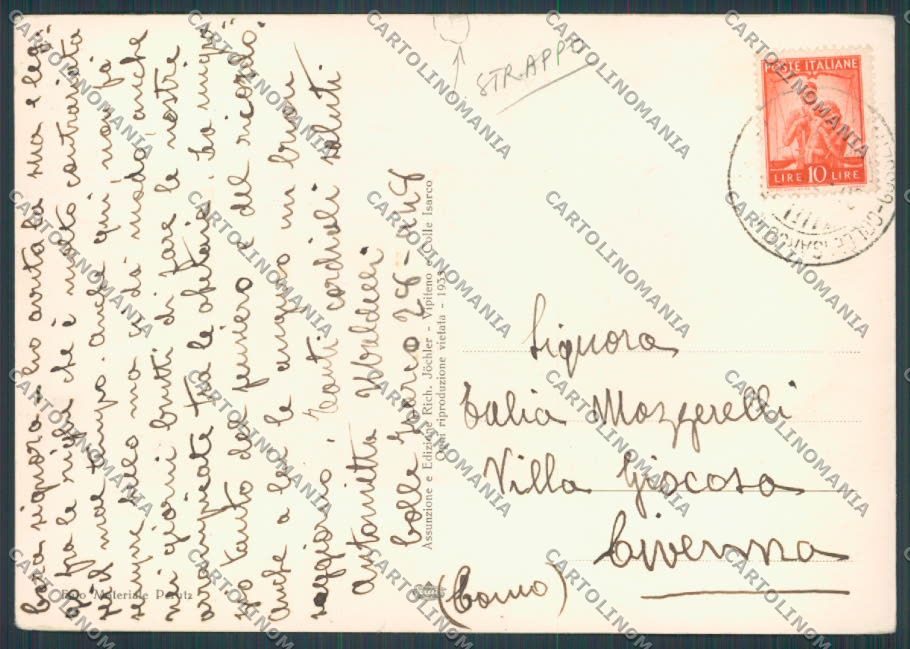 Cara signora - ho avuta la sua e leg-
go fra le righe che è molto contrariata
pel mal tempo. anche qui non fa
sempre bello ma si dà modo anche
nei giorni brutti di fare le nostre
arrampicate tra le
tanto del pensiero e del ricordo.
Anche a lei le auguro un buon
soggiorno. Tanti cordiali saluti
Antonietta Valdieri
Colle Isarco 29-
Foto Materiale Perutz
Assunzione e Edizione Rich. Jöchler - Vipiteno e Colle Isarco
Ogni riproduzione vietata - 1935
STRAPPI
POSTE ITALIANE
LIRE 10 LIRE
COLLE ISARCO
Signora
Talia Mozzerelli
Villa Giocosa
Civenna
(Como)
CARTOLINOMANIA